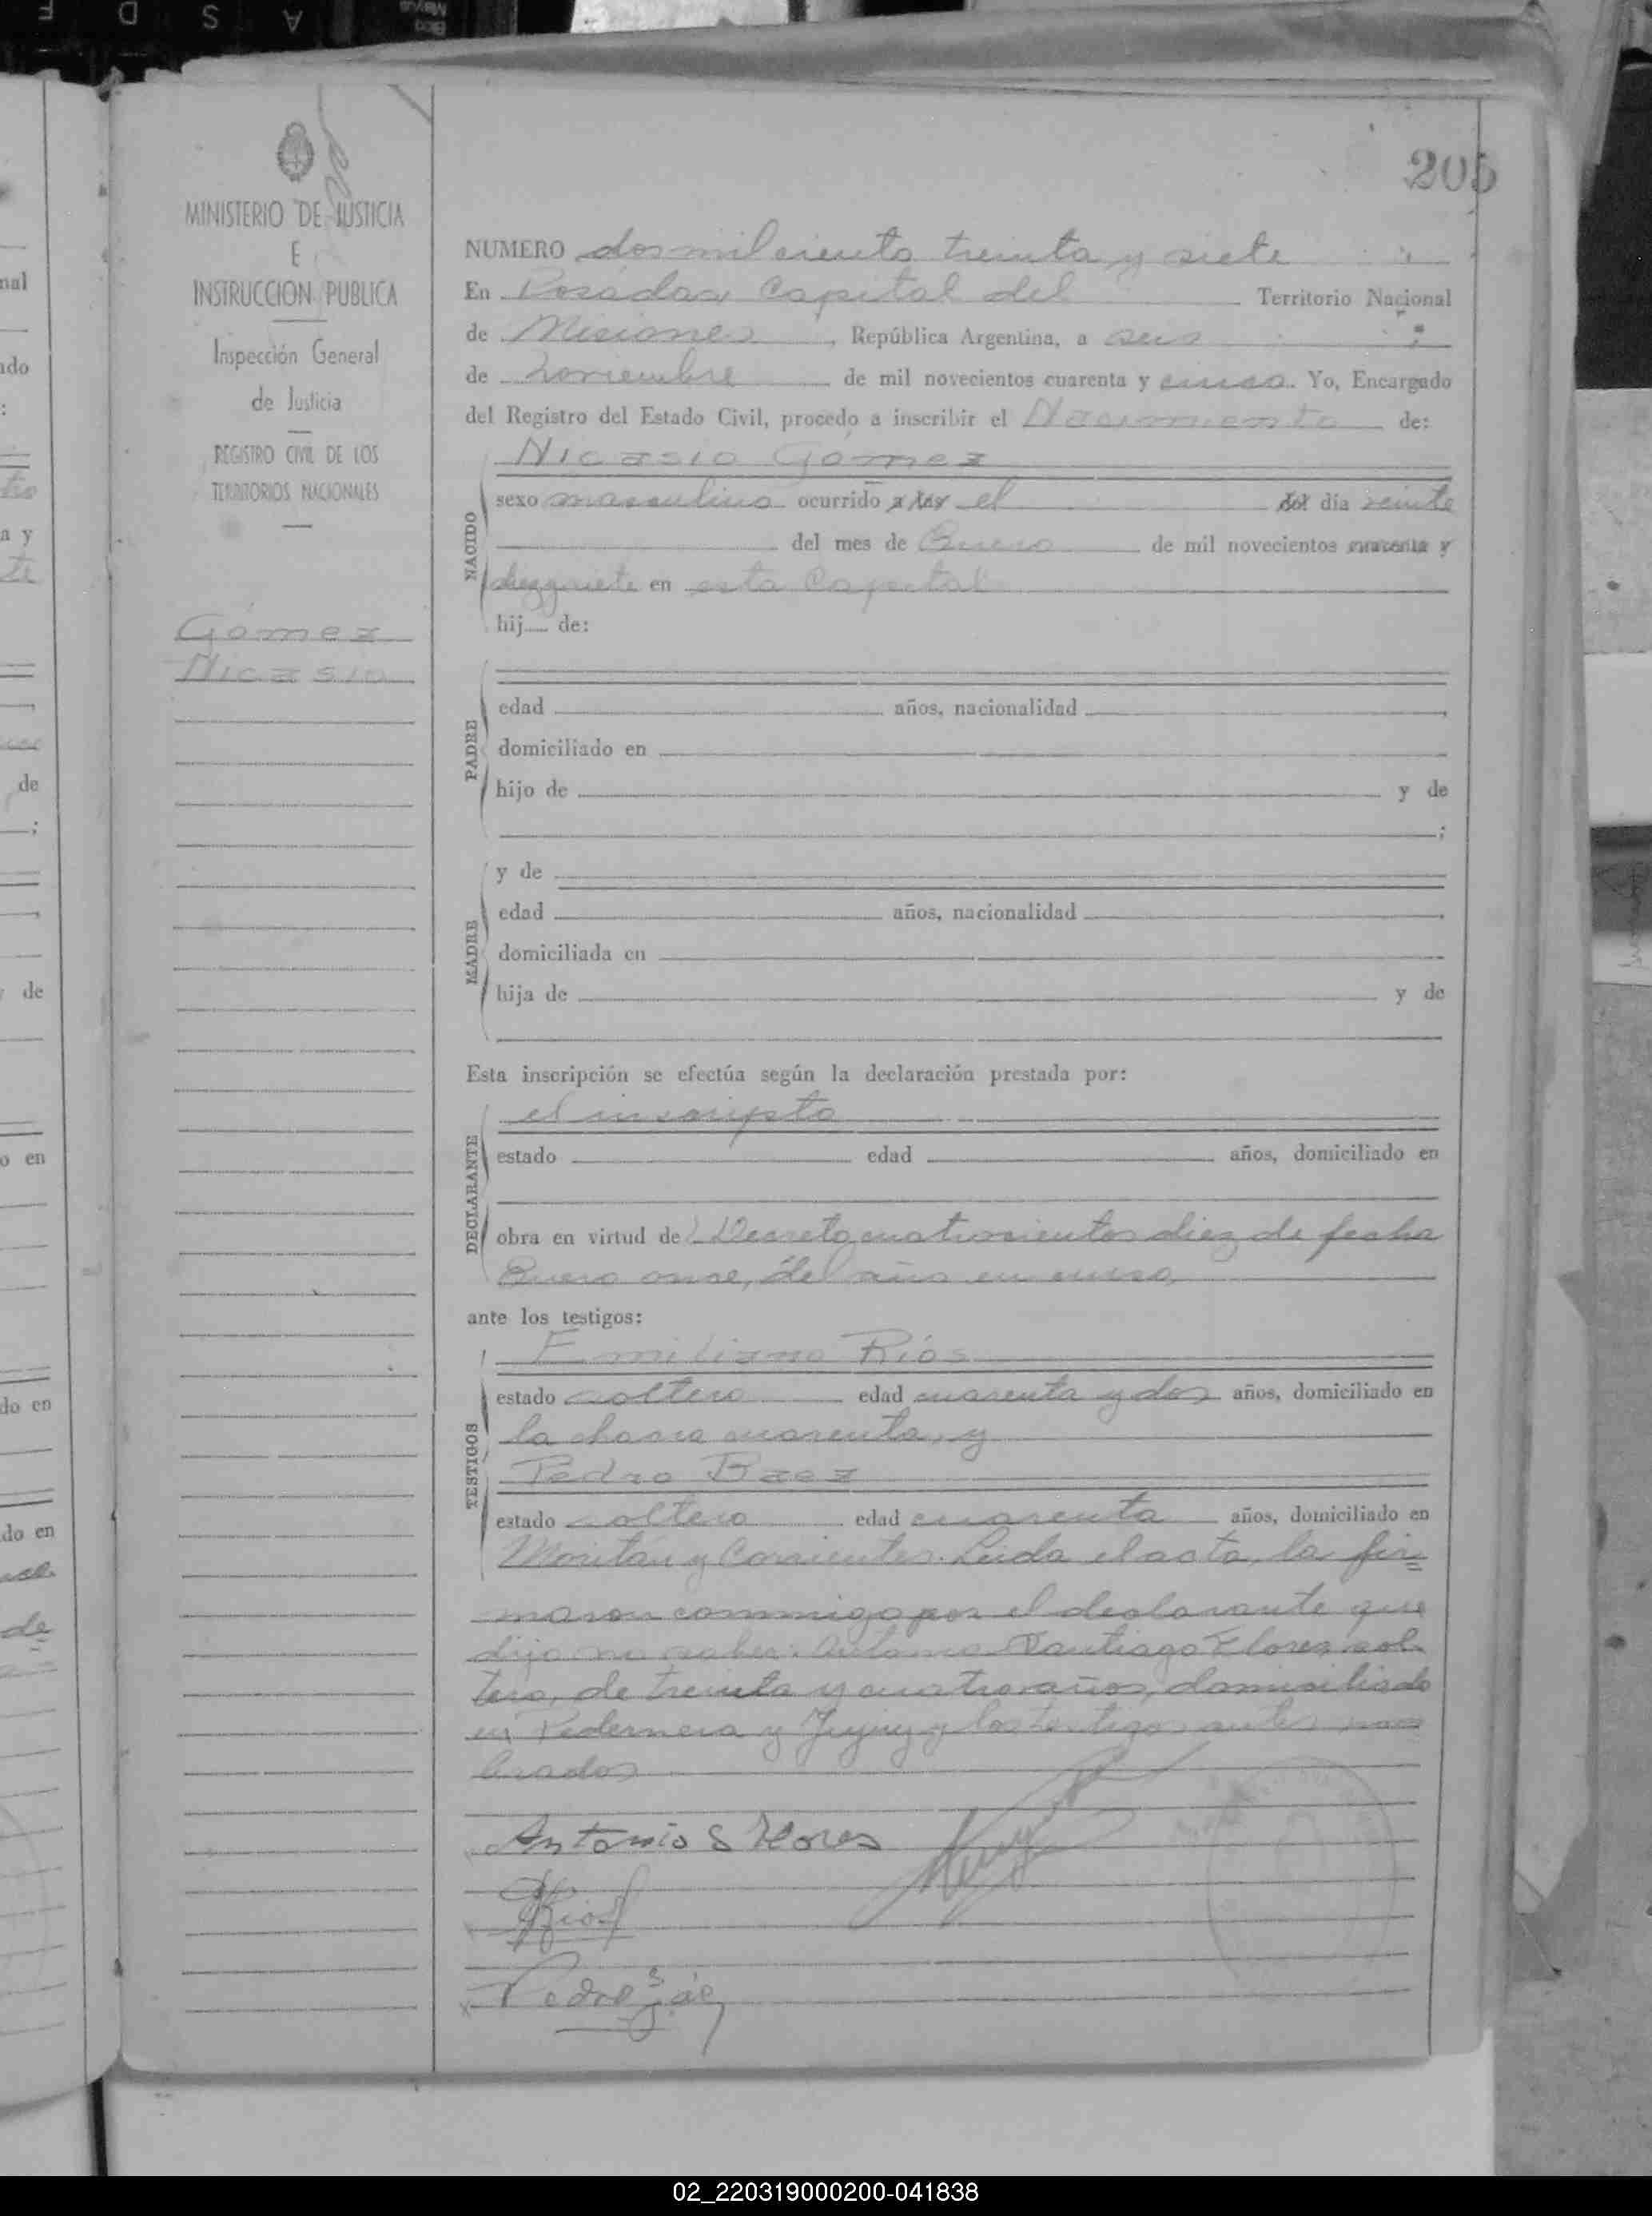 205
MINISTERIO DE JUSTICIA
E
INSTRUCCION PUBLICA
Inspección General
de Justicia
REGISTRO CIVIL DE LOS
TERRITORIOS NACIONALES
Gómez
Nicasio
NUMERO dos mil ciento treinta y siete
En Posadas Capital del Territorio Nacional
de Misiones, República Argentina, a seis
de noviembre de mil novecientos cuarenta y cinco. Yo, Encargado
del Registro del Estado Civil, procedo a inscribir el Nacimiento de:
Nicasio Gómez
NACIDO
sexo masculino ocurrido a las el del día veinte
del mes de Enero de mil novecientos cuarenta y
diezysiete en esta Capital
hij de:
PADRE
edad años, nacionalidad
domiciliado en
hijo de y de
;
MADRE
y de
edad años, nacionalidad
domiciliada en
hija de y de
Esta inscripción se efectúa según la declaración prestada por:
DECLARANTE
el inscripto
estado edad años, domiciliado en
obra en virtud de Decreto cuatrocientos diez de fecha
Enero once, del año en curso
ante los testigos:
TESTIGOS
Emiliano Ríos
estado soltero edad cuarenta y dos años, domiciliado en
la chacra cuarenta, y
Pedro Baez
estado soltero edad cuarenta años, domiciliado en
Moritán y Corrientes. Leida el acta, la fir=
maron conmigo por el declarante que
dijo no saber: Antonio Santiago Flores, sol
tero, de treinta y cuatro años, domiciliado
en Pedernera y Jujuy y los testigos antes nom
brados
Antonio S Flores
Rios
Pedro Báez
02_220319000200-041838